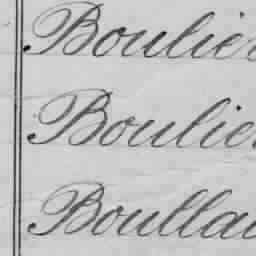 Boulier
Boulier
Boullau